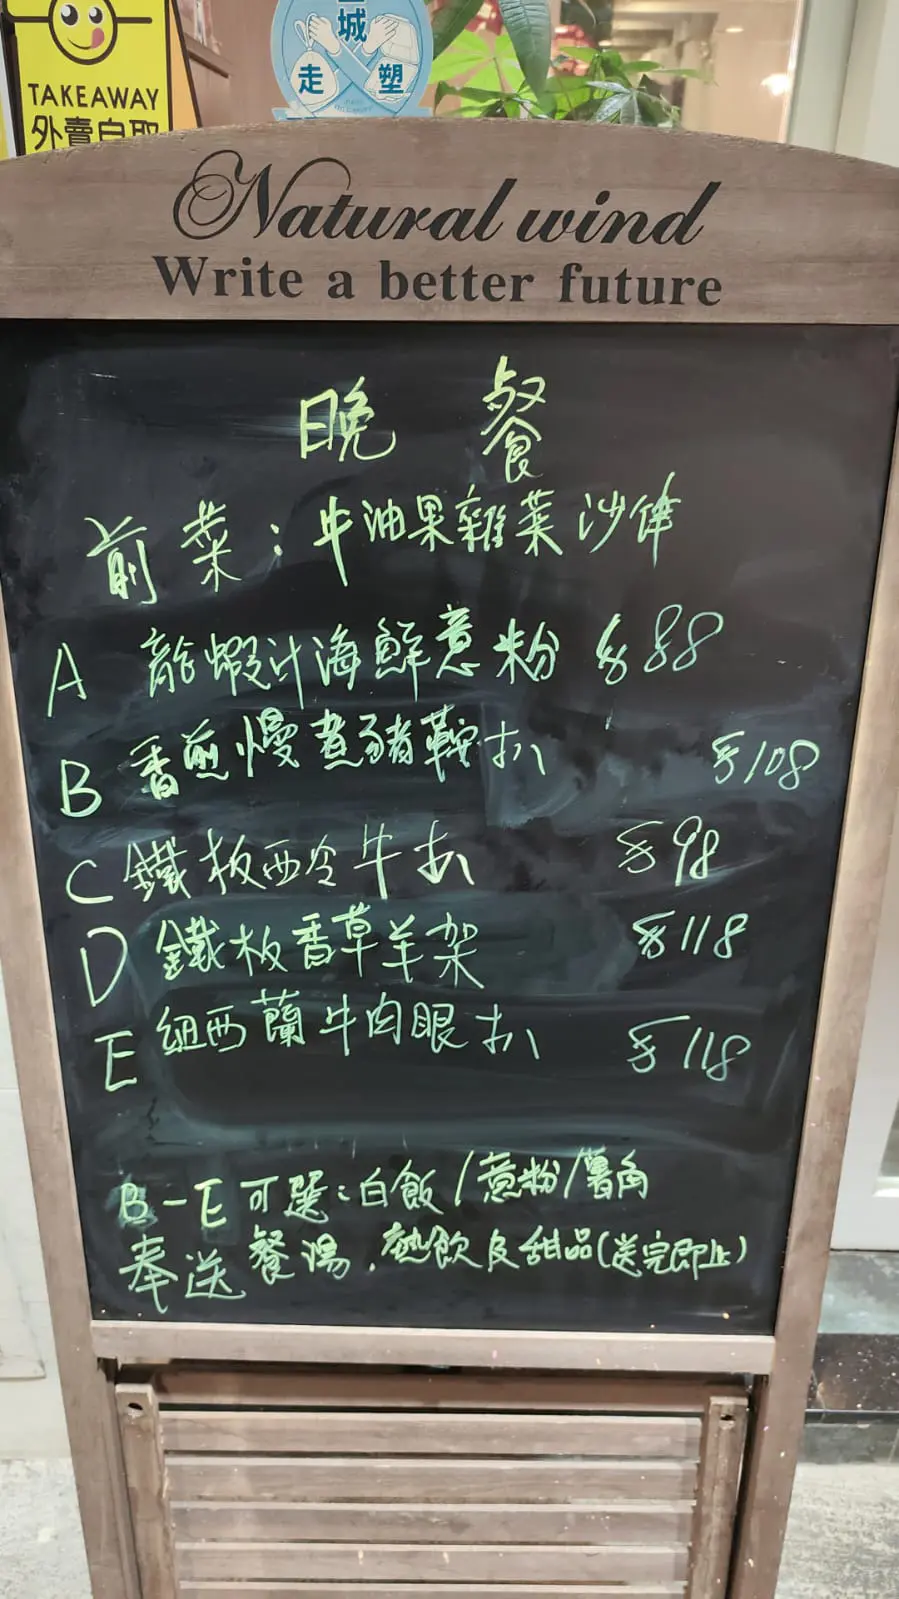 城
走 塑
TAKEAWAY
外賣自取
Natural wind
Write a better future
晚 餐
前菜：牛油果雜菜沙律
A 龍蝦汁海鮮意粉 $88
B 香煎慢煮豬鞍扒 $108
C 鐵板西冷牛扒 $98
D 鐵板香草羊架 $118
E 紐西蘭牛肉眼扒 $118
B-E 可選：白飯/意粉/薯角
奉送餐湯，熱飲及甜品(送完即止)